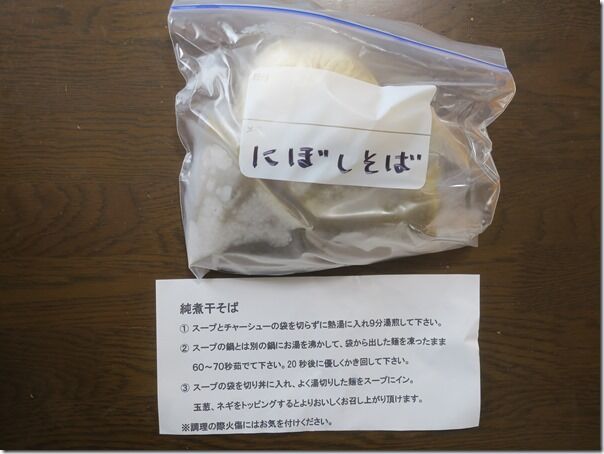 にぼしそば
純煮干そば
① スープとチャーシューの袋を切らずに熱湯に入れ9分湯煎して下さい。
② スープの鍋とは別の鍋にお湯を沸かして、袋から出した麺を凍ったまま
60～70秒茹でて下さい。20秒後に優しくかき回して下さい。
③ スープの袋を切り丼に入れ、よく湯切りした麺をスープにイン。
玉葱、ネギをトッピングするとよりおいしくお召し上がり頂けます。
※調理の際火傷にはお気を付けください。